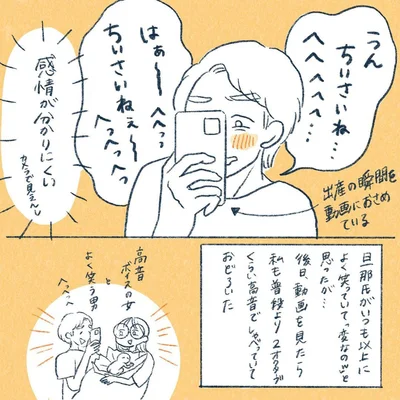 うん
ちいさいね…
へへへへへ…
はぁ〜へへっ
ちいさいねぇ〜
へっへっへっ
感情が分かりにくい
カメラで見えんし
出産の瞬間を
動画におさめ
ている
旦那氏がいつも以上に
よく笑っていて「変なの」と
思ったが…
後日、動画を見たら
私も普段より2オクターブ
くらい高音でしゃべっていて
おどろいた
高音
ボイスの女
と
よく笑う男
へっへっ